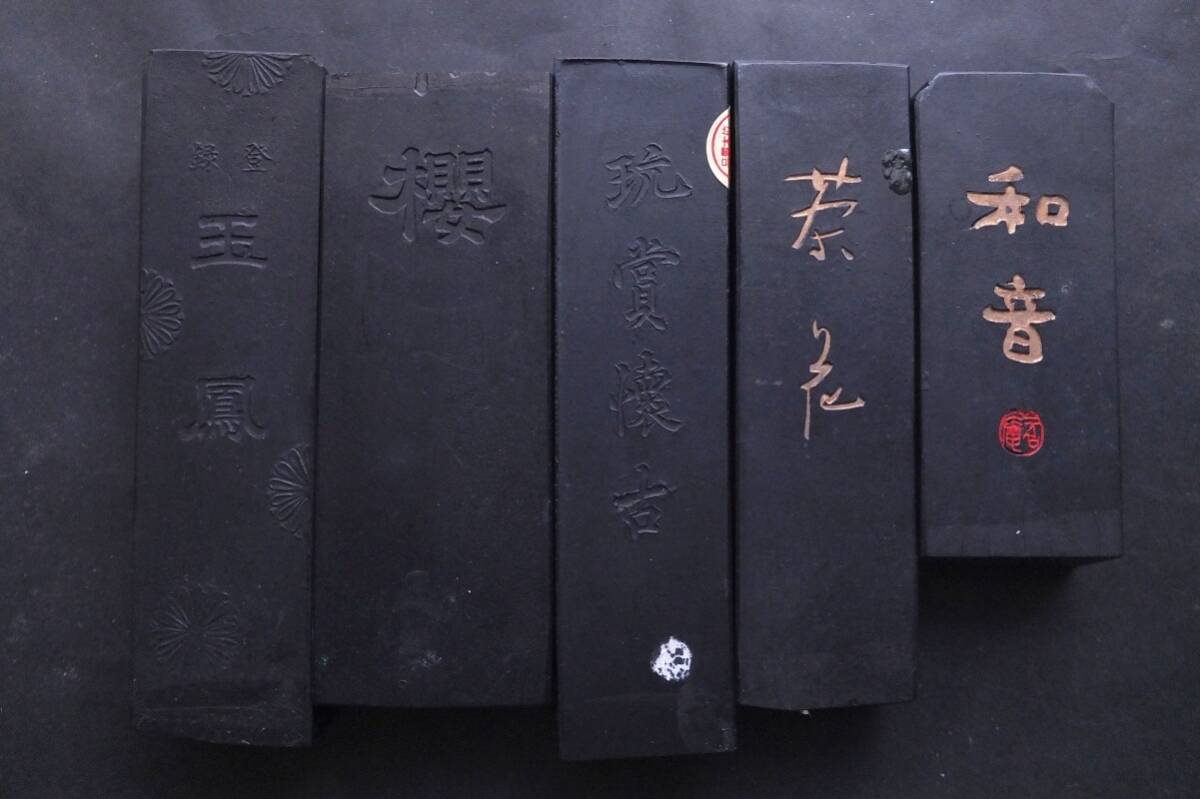 登録
玉鳳
櫻
玩賞懐古
茶花
和音